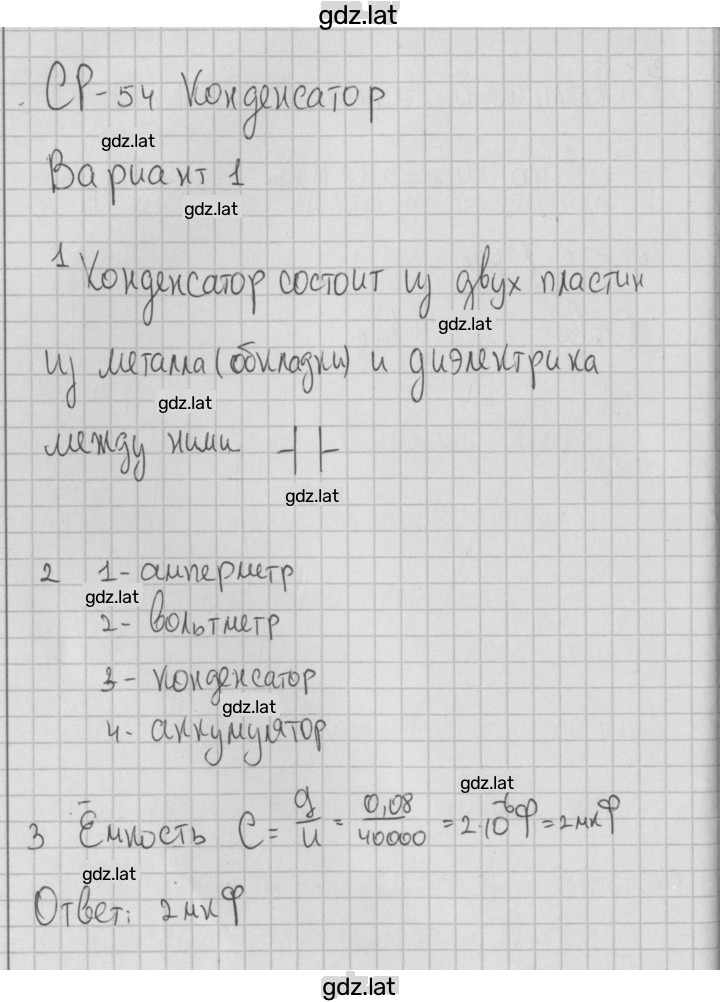 gdz.lat
СР-54 Конденсатор
gdz.lat
Вариант 1
gdz.lat
1 Конденсатор состоит из двух пластин
gdz.lat
из металла (обкладки) и диэлектрика
gdz.lat
между ними ⊣⊢
gdz.lat
2 1- амперметр
gdz.lat
2- вольтметр
3- конденсатор
gdz.lat
4- аккумулятор
gdz.lat
3 Ёмкость C = g/u = 0,08/40000 = 2·10⁻⁶ Ф = 2 мкФ
gdz.lat
Ответ: 2 мкФ
gdz.lat